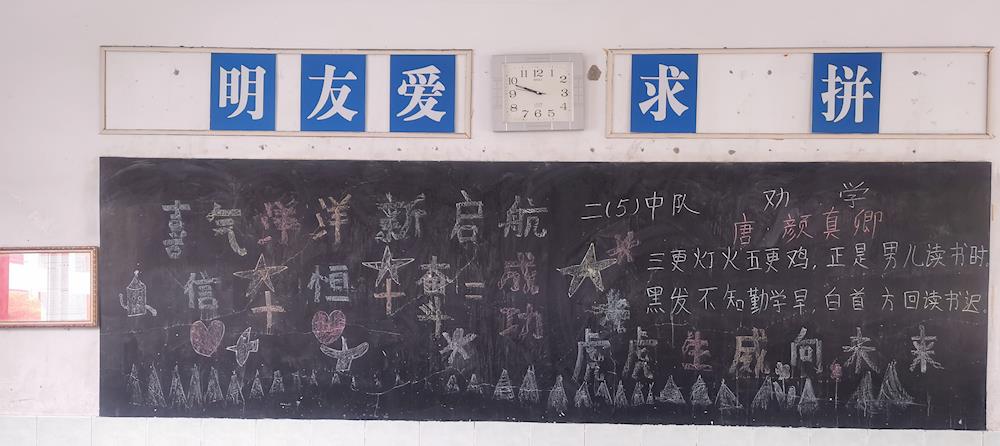 明 友 爱
求 拼
喜气洋洋新启航
信+恒+奋斗=成功
虎虎生威向未来
二(5)中队
劝学
唐 颜真卿
三更灯火五更鸡,正是男儿读书时.
黑发不知勤学早,白首方回读书迟.